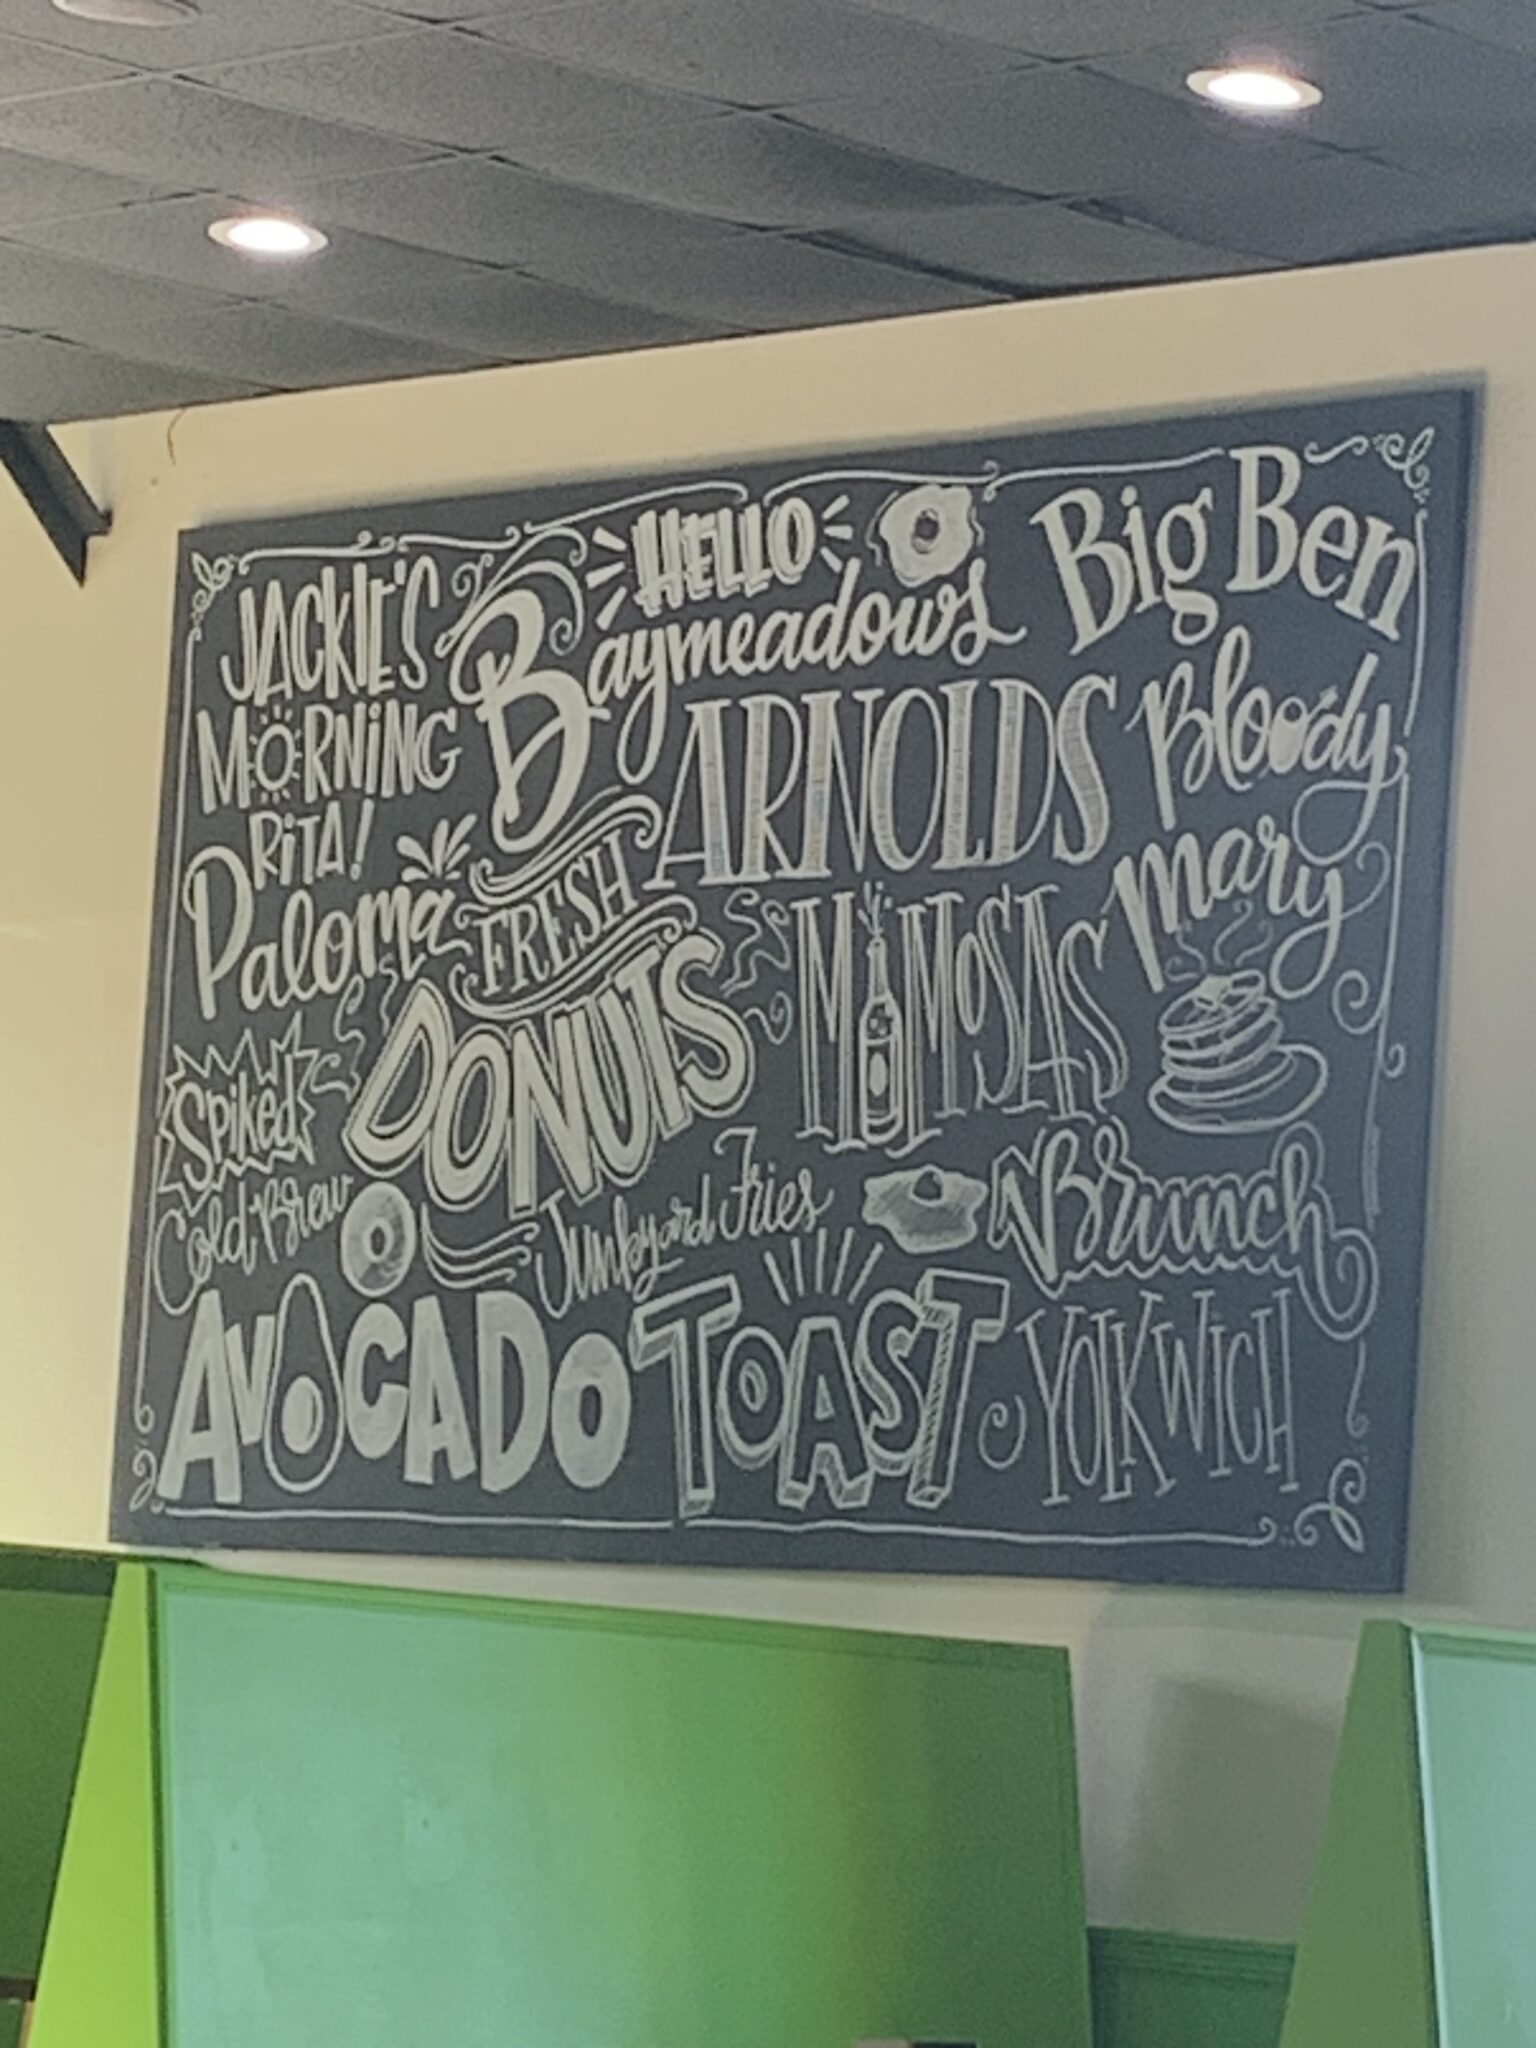 HELLO
Baymeadows
JACKIE'S
MORNING
RITA!
Paloma
Big Ben
Bloody
Mary
ARNOLDS
FRESH
DONUTS
MIMOSAS
Spiked
Cold Brew
Junkyard Fries
Brunch
AVOCADO TOAST
YOLKWICH